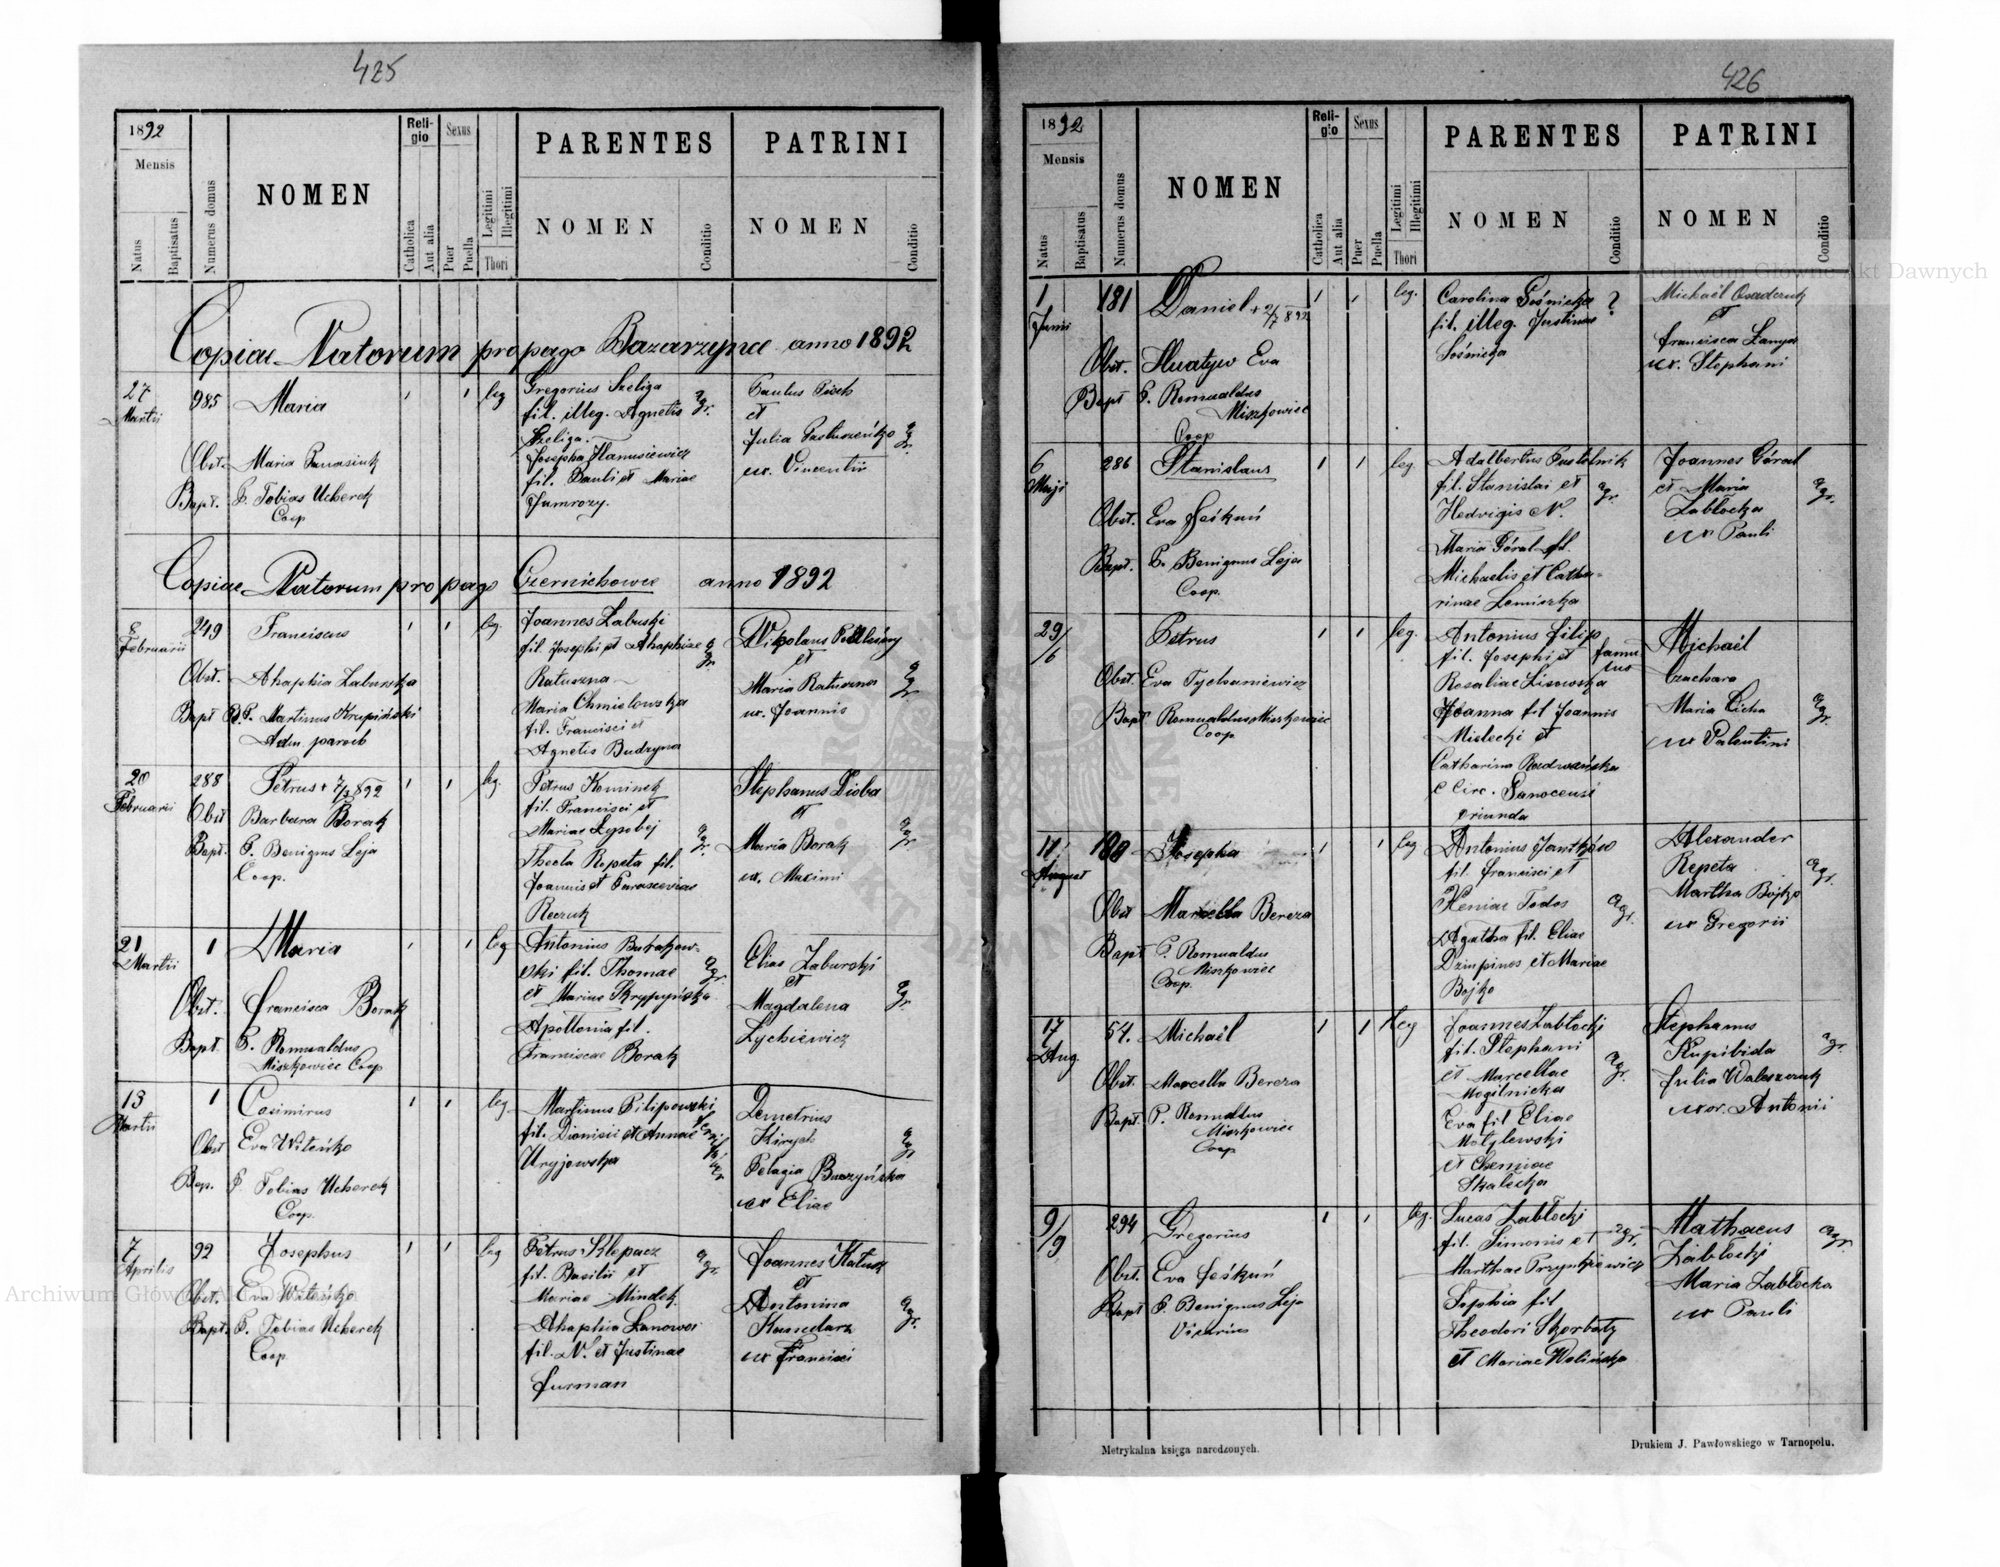 425
1892
Mensis
Natus
Baptisatus
Numerus domus
NOMEN
Religio
Catholica
Aut alia
Sexus
Puer
Puella
Legitimi
Illegitimi
Thori
PARENTES
NOMEN
Conditio
PATRINI
NOMEN
Conditio
Copiae Natorum pro pago Bazarzynce anno 1892
27 Martii
985
Maria
leg
Gregorius Szeliga
fil. illeg. Agnetis
Szeliga.
Josepha Stanusiewicz
fil. Pauli et Mariae
Jamrozy.
agr.
Paulus
et
Julia
ux. Vincentii
agr.
Obst. Maria Panasiuk
Bapt. P. Tobias Ucherek
Coop
Copiae Natorum pro pago Czernichowce anno 1892
8 Februarii
249
Franciscus
leg.
Joannes Zaburski
fil. Josephi et Ahaphiae
Ratuszna
Maria Chmielowska
fil. Francisci et
Agnetis Budzyna
agr.
Nikolaus
et
Maria Ratuszna
ux. Joannis
agr.
Obst. Ahaphia Zaburska
Bapt R.P. Martinus Krupiński
Adm. paroch
20 Februarii
288
Petrus + 7/3 892
leg.
Petrus Kominek
fil. Francisci et
Mariae Łysobej
Thecla Repeta fil.
Joannis et Parasceviae
Reczuk
agr.
Stephanus Dioba
et
Maria Borak
ux. Maximi
agr.
Obst Barbara Borak
Bapt. P. Benignus Leja
Coop.
21 Martii
1
Maria
leg
Antonius Burakow-
ski fil. Thomae
et Mariae Skrypyńska
Apollonia fil.
Franciscae Borak
agr.
Elias Zaburski
et
Magdalena
Lychiewicz
agr.
Obst. Francisca Borak
Bapt P. Romualdus
Miszkowiec Coop
13 Martii
1
Casimirus
leg
Martinus Pilipowski
fil. Dionisii et Annae
Uryjowska
Demetrius
Kiryk
Pelagia Buczyńska
ux Eliae
agr
Obst Eva Witeńko
Bap. P. Tobias Ucherek
Coop.
7 Aprilis
92
Josephus
leg
Petrus Klepacz
fil. Basilii et
Mariae Mindek.
Ahaphia Łanowei
fil. N. et Justinae
Furman
agr.
Joannes Katusz
et
Antonina
Kamedarz
ux Francisci
agr.
Obst. Eva Witeńko
Bapt. P. Tobias Ucherek
Coop
426
1892
Mensis
Natus
Baptisatus
Numerus domus
NOMEN
Religio
Catholica
Aut alia
Sexus
Puer
Puella
Legitimi
Illegitimi
Thori
PARENTES
NOMEN
Conditio
PATRINI
NOMEN
Conditio
1 Junii
181
Daniel + 2/7 892
leg.
Carolina Sośnicka
fil. illeg. Justinae
Sośnicka
?
Michaël Osadczuk
et
Francisca Łanyst
ux. Stephani
Obst. Hnatyw Eva
Bapt P. Romualdus
Miszkowiec
Coop
6 Maji
286
Stanislaus
leg.
Adalbertus Pustelnik
fil. Stanislai et
Hedvigis N.
Maria Góral fil.
Michaelis et Catha-
rinae Lemiszka
agr.
Joannes Góral
et Maria
Zabłocka
ux Pauli
agr.
Obst. Eva Feśkun
Bapt. P. Benignus Leja
Coop.
29/6
Petrus
leg.
Antonius Filip
fil. Josephi et
Rosaliae Lisowska
Joanna fil Joannis
Mielecki et
Catharina Radwańska
e Circ. Sanocensi
oriunda
famulus
Michaël
Czachara
Maria Cicha
ux Valentini
agr.
Obst. Eva Tychaniewicz
Bapt Romualdus Miszkowiec
Coop.
11 August
188
Josepha
leg
Antonius Jantków
fil. Francisci et
Xeniae Todos
Agatha fil. Eliae
Dzimpinos et Mariae
Bojko
agr.
Alexander
Repeta
Martha Bojko
ux Gregorii
agr.
Obst Marcella Bereza
Bapt P. Romualdus
Miszkowiec
Coop.
17 Aug.
54.
Michaël
leg
Joannes Zabłocki
fil. Stephani
et Marcellae
Mogilnicka
Eva fil Eliae
Motylewski
et Cheniae
Skalecka
agr.
Stephanus
Kupibida
Julia Waleszczuk
uxor. Antonii
agr.
Obst. Marcella Bereza
Bapt. P. Romualdus
Miszkowiec
Coop
9/9
294
Gregorius
leg.
Lucas Zabłocki
fil. Simonis et
Marthae Przyszkiewicz
Sophia fil
Theodori Skorbatz
et Mariae Wolińska
agr.
Mathaeus
Zabłocki
Maria Zabłocka
ux Pauli
agr.
Obst. Eva Feśkun
Bapt P. Benignus Leja
Vicarius
Metrykalna księga narodzonych.
Drukiem J. Pawłowskiego w Tarnopolu.
Archiwum Główne Akt Dawnych
Archiwum Główne Akt Dawnych